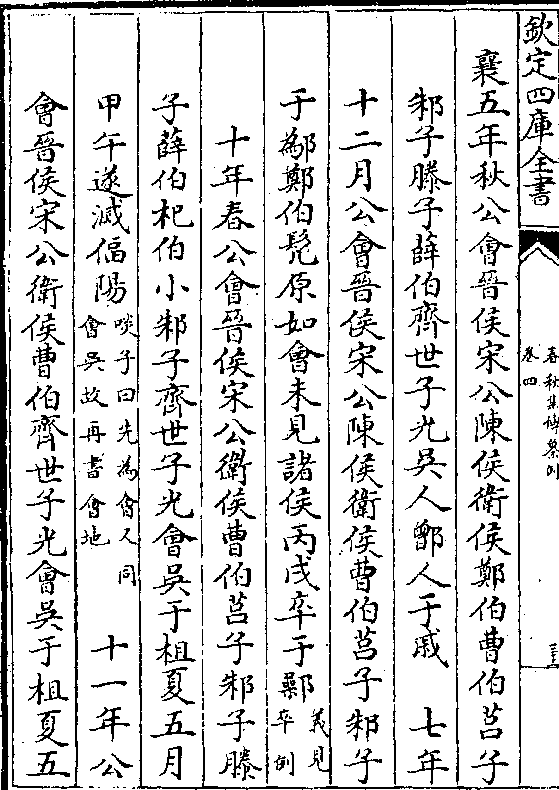 欽定四庫全書
春秋集傳纂例
卷四
襄五年秋公會晉侯宋公陳侯衛侯鄭伯曹伯莒子
邾子滕子薛伯齊世子光吳人鄫人于戚　七年
十二月公會晉侯宋公陳侯衛侯曹伯莒子邾子
于鄬鄭伯髠原如會未見諸侯丙戌卒于鄵義見
卒例
十年春公會晉侯宋公衛侯曹伯莒子邾子滕
子薛伯杞伯小邾子齊世子光會吳于柤夏五月
甲午遂滅偪陽啖子曰先為會人同
會吳故再書會地　十一年公
會晉侯宋公衛侯曹伯齊世子光會吳于柤夏五